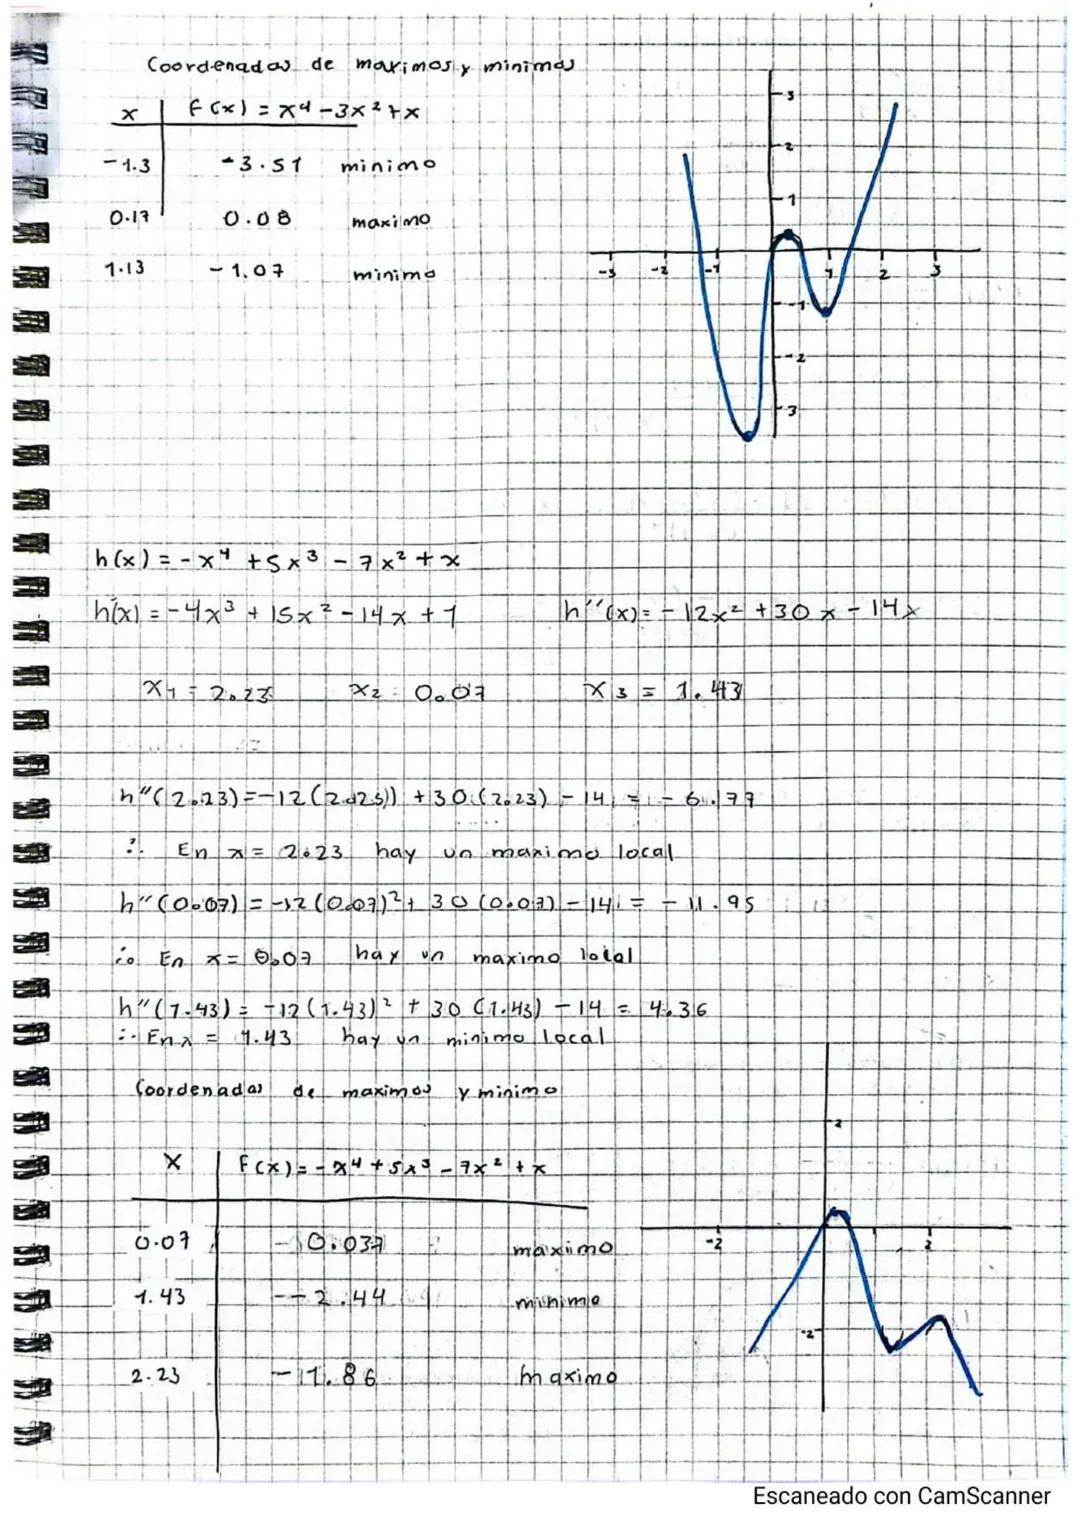 Coordenadas de maximos y minimos
x f(x) = x⁴ - 3x² + x
-1.3 -3.51 minimo
0.17 0.08 maximo
1.13 -1.07 minimo
3
2
1
-3 -2 -1 1 2 3
-1
-2
3
h(x) = -x⁴ + 5x³ - 7x² + x
h'(x) = -4x³ + 15x² - 14x + 1 h''(x) = -12x² + 30x - 14x
x₁ = 2.23 x₂ = 0.07 x₃ = 1.43
h''(2.23) = -12(2.23)) + 30(2.23) - 14 = -6.77
∴ En x = 2.23 hay un maximo local
h''(0.07) = -12(0.07)² + 30(0.07) - 14 = -11.95
∴ En x = 0.07 hay un maximo local
h''(1.43) = -12(1.43)² + 30(1.43) - 14 = 4.36
∴ En x = 1.43 hay un minimo local
Coordenadas de maximos y minimo
x f(x) = -x⁴ + 5x³ - 7x² + x
0.07 -0.037 maximo
1.43 --2.44 minimo
2.23 -1.86 maximo
2
-2 2
-2
Escaneado con CamScanner